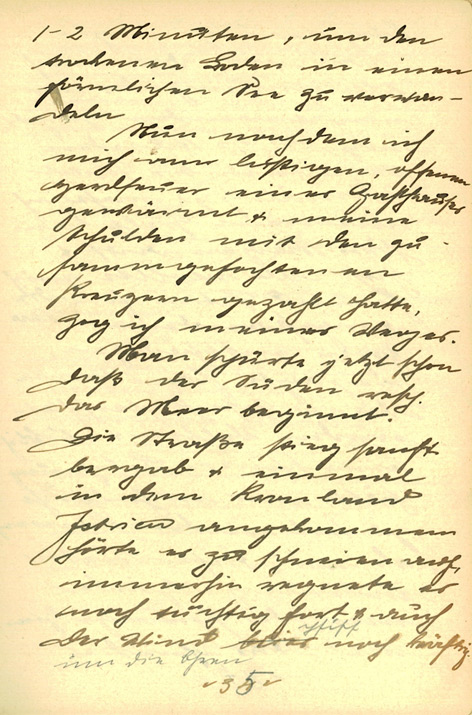 1-2 Minuten, um den
trockenen Boden in einen
förmlichen See zu verwan-
deln
Nun nachdem ich
mich am lustigen, offenen
Herdfeuer eines Gasthauses
gewärmt & meine
Schulden mit den zu-
sammgefochtenen
Kreuzern gezahlt hatte,
zog ich meines Weges.
Man spürte jetzt schon
daß der Süden resp.
das Meer beginnt.
Die Straße stieg sanft
bergab & einmal
in dem Kronland
Istrien angekommen
hörte es zu schneien auf,
immerhin regnete es
noch tüchtig fort & auch
der Wind blies pfiff noch kräftig
um die Ohren
-35-